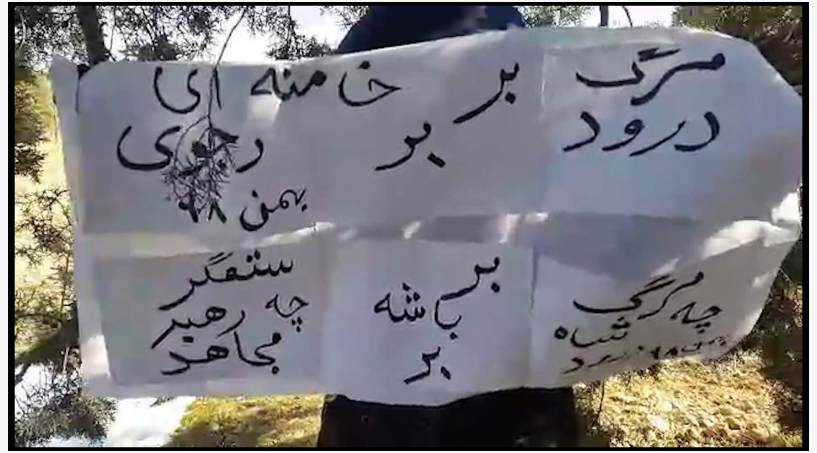 مرگ بر خامنه ای
درود بر رجوی
بهمن ۹۸
مرگ بر ستمگر
چه شاه باشه چه رهبر
بهمن ۹۸ درود بر مجاهد